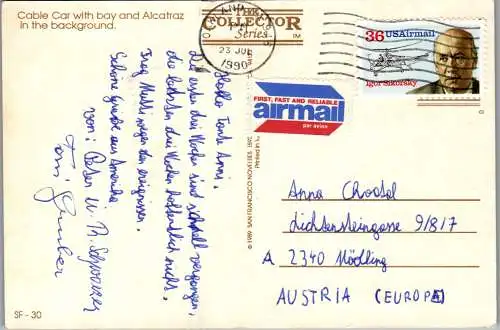 Cable Car with bay and Alcatraz
in the background.
THE
COLLECTOR
Series
TM
23 JUL
1990
36 USAirmail
Igor Sikorsky
FIRST, FAST AND RELIABLE
airmail
par avion
Hallo Tante Anni.
Die ersten drei Wochen sind schnell vergangen,
die letzten drei Wochen hoffentlich nicht.
Frag Mutti wegen den ereignissen.
Schöne grüße aus Amerika
von: Peter u.
Anna
Lichtensteingasse 9/8/7
A 2340 Mödling
AUSTRIA (EUROPA)
© 1989 SAN FRANCISCO NOVELTIES
Printed in
SF - 30